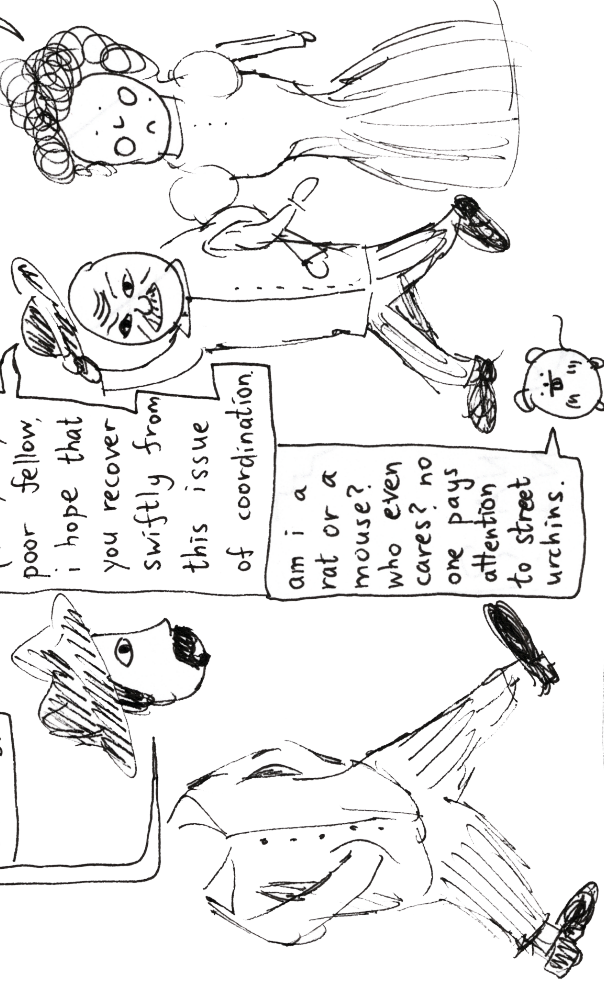 poor fellow,
i hope that
you recover
swiftly from
this issue
of coordination.
am i a
rat or a
mouse?
who even
cares? no
one pays
attention
to street
urchins.